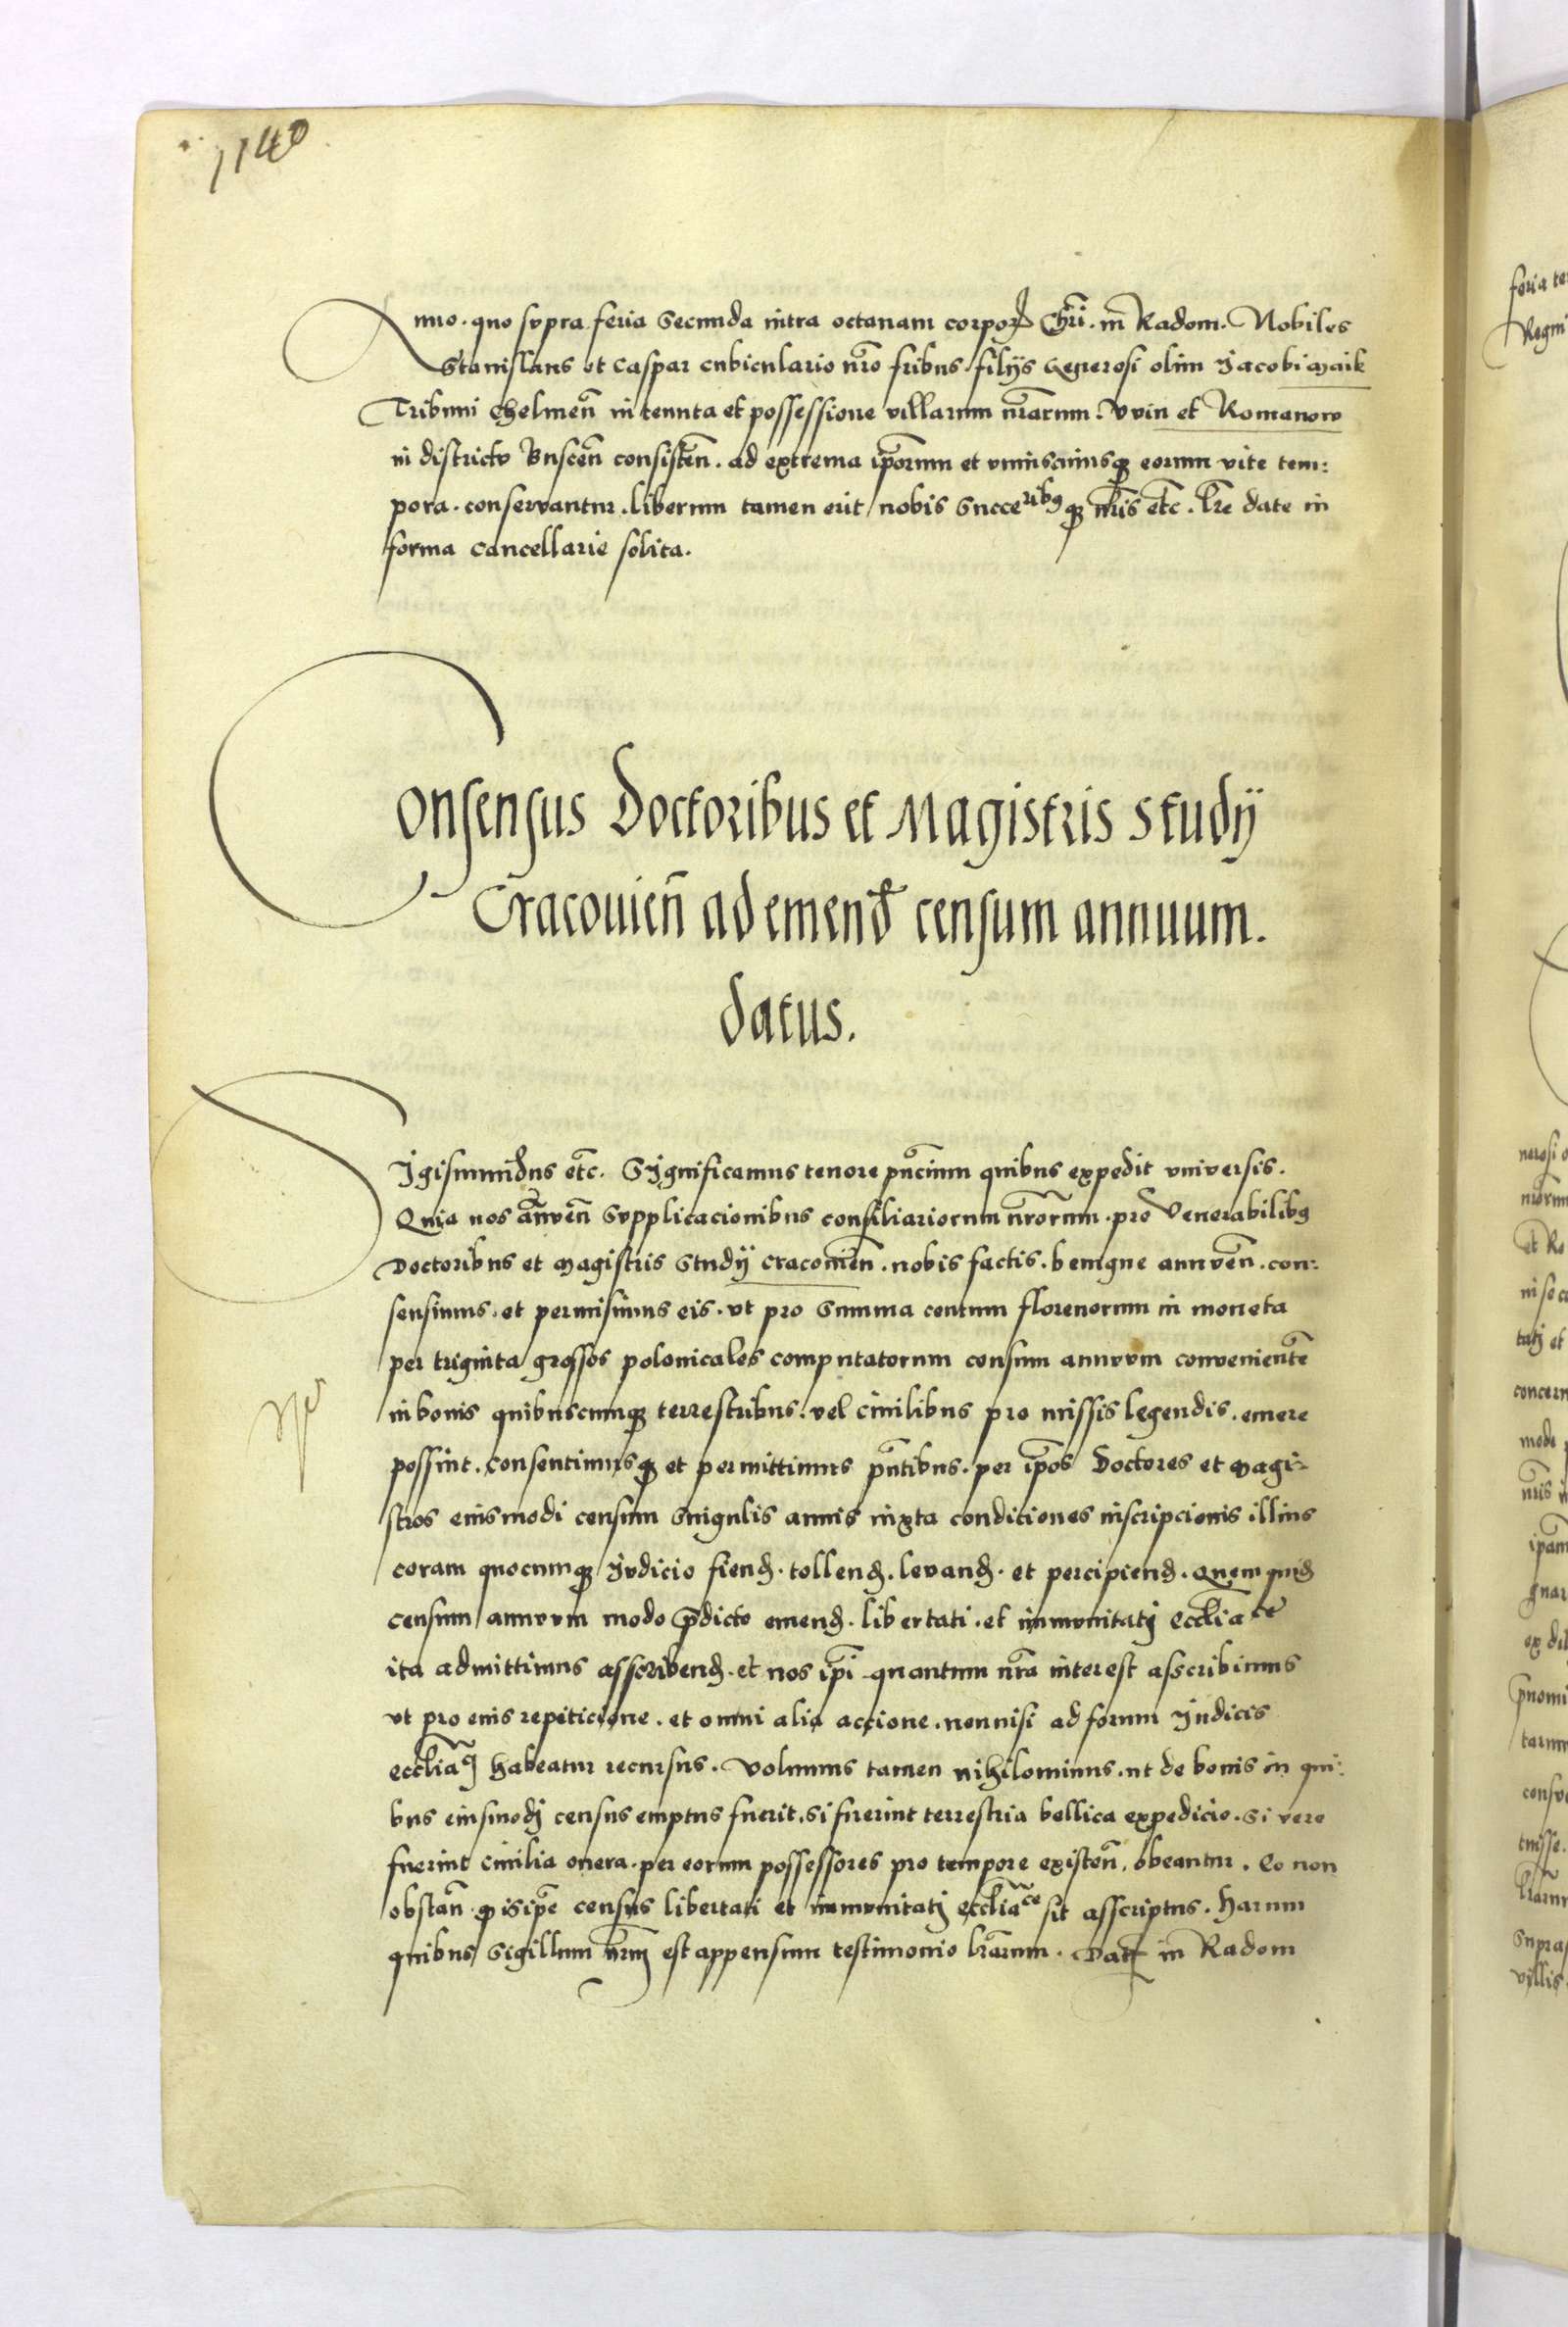 1140
Anno. quo supra feria Secunda intra octavam corporis Chri. in Radom. Nobiles
Stanislaus et Caspar cubiculario nro fribus filijs Generosi olim Jacobi Maik
Tribuni Chelmen in tenuta et possessione villarum nrarum. Uvin et Romanow
in districtu Buscen consisten. ad extrema iporum et uniuscuiusq eorum vite tem:
pora. conservantur. liberum tamen erit nobis Succeribq q nris etc. lre date in
forma cancellarie solita.
Consensus Doctoribus et Magistris Studij
Cracovien ad emend censum annuum.
datus.
Sigismundus etc. Significamus tenore pncium quibus expedit universis.
Quia nos annuen Supplicacionibus consiliariorum nrorum. pro Venerabilibq
Doctoribus et Magistris Studij Cracovien. nobis factis. benigne annuen. con:
sensimus. et permisimus eis. ut pro Summa centum florenorum in moneta
per triginta grossos polonicales computatorum censum annuum convenientem
in bonis quibuscumq terrestribus. vel civilibus pro missis legendis. emere
possint. consentimusq et permittimus pntibus. per ipos Doctores et Magi:
stros eiusmodi censum Singulis annis iuxta conditiones inscripcionis illius
coram quocumq Judicio fiend. tollend. levand. et percipiend. Quem quid
censum annuum modo pdicto emend. libertati. et immunitatj Ecclia ce
ita admittimus asscribend. et nos ipi quantum nra interest asscribimus
ut pro eius repeticione. et omni alia accione. nonnisi ad forum Judicis
eccliacj habeatur recursus. Volumus tamen nihilominus. ut de bonis in qui:
bus eiusmodj census emptus fuerit, si fuerint terrestria bellica expedicio. Si vero
fuerint civilia onera. per eorum possessores pro tempore existen, obeantur. Eo non
obstan. q isipe census libertati et immunitatj eccliace sit asscriptus. Harum
quibus Sigillum nrm est appensum testimonio lrarum. Dat in Radom